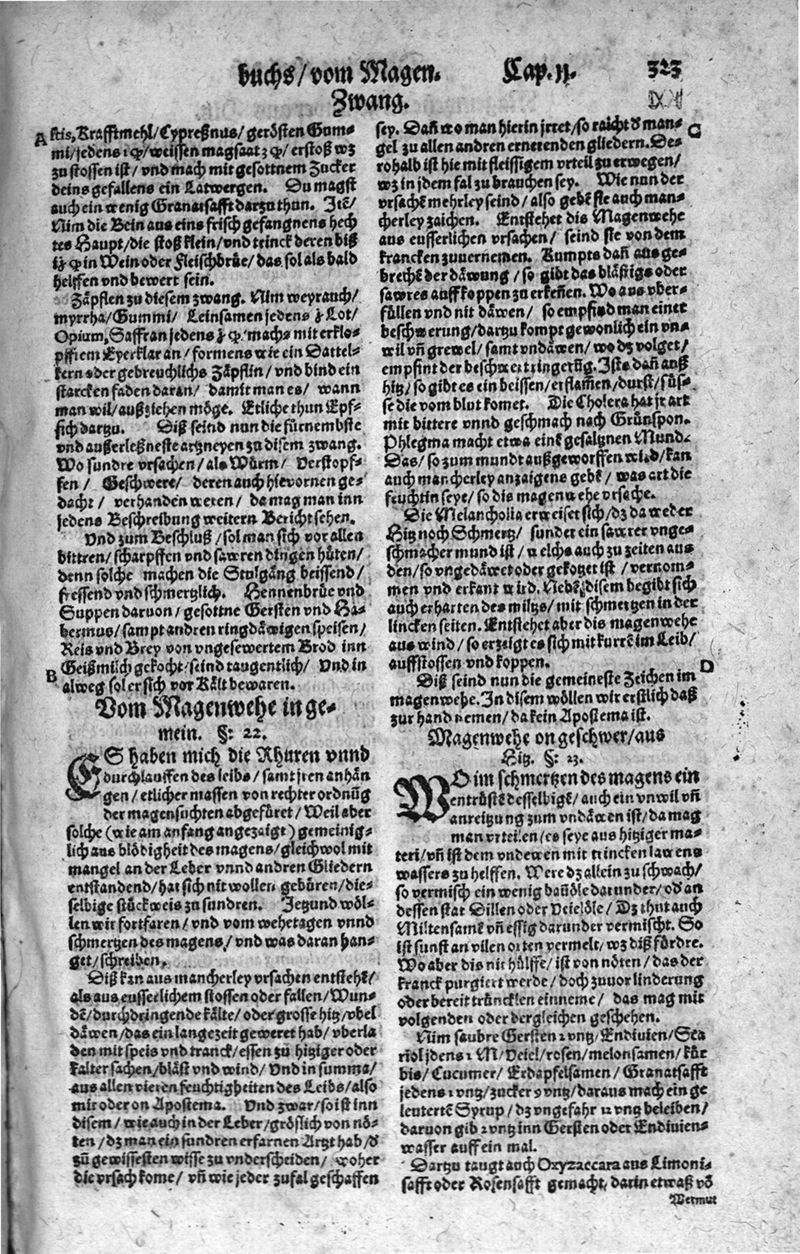 buchs/vom Magen. Cap. ij. 323
Zwang.
A stis, Krafftmehl/Cypreßnus/gerösten Gum-
mi/jedens 1 quintlin/weissen magsaat 2 quintlin/erstoß wz
zu stossen ist/vnd mach mit gesottnem Zucker
deins gefallens ein Latwergen. Du magst
auch ein wenig Granatsafft darzu thun. Itẽ/
Nim die Bein aus eins frisch gefangnens hech
tes Haupt/die stoß klein/vnd trinck deren biß
in Wein oder Fleischbrüe/das sol als bald
helffen vnd bewert sein.
Zäpflen zu diesem zwang. Nim weyrauch/
myrrha/Gummi/ Leinsamen jedens Lot/
Opium, Saffran jedens machs mit erklo-
pfftem Eyerklar an/formens wie ein Dattel-
kern oder gebreuchlichs Zäpflin/vnd bind ein
starcken faden daran/ damit man es/ wann
man wil/außziehen möge. Etliche thun Epf-
sich dartzu. Diß seind nun die fürnembste
vnd außerleßneste artzneyen zu disem zwang.
Wo sundre vrsachen/als Würm/ Verstopf-
fen/ Geschwere/ deren auch hievornen ge-
dacht/ verhanden weren/ da mag man inn
jedens Beschreibung weitern Bericht sehen.
Vnd zum Beschluß/sol man sich vor allen
bittren/scharpffen vnd sawren dingen hüten/
denn solche machen die Stulgäng beissend/
fressend vnd schmertzlich. Hennenbrüe vnd
Suppen daruon/gesottne Gersten vnd Ha-
bermus/sampt andren ringdäwigen speisen/
Reis vnd Brey von vngesewertem Brod inn
B Geißmilch gekocht/seind taugentlich/ Vnd in
alweg sol er sich vor Kält bewaren.
Vom Magenwehe in ge-
mein. §. 22.
ES haben mich die Rhuren vnnd
durchlauffen des leibs/samt jren anhän
gen/etlicher massen von rechter ordnũg
der magensuchten abgefüret/Weil aber
solche (wie am anfang angezeigt) gemeinig-
lich aus blödigheit des magens/gleichwol mit
mangel an der Leber vnnd andren Gliedern
entstandend/hat sich nit wollen gebüren/die-
selbige stückweis zu sundren. Jetzund wöl-
len wir fortfaren/vnd vom wehetagen vnnd
schmertzen des magens/vnd was daran han-
get/schreiben.
Diß kan aus mancherley vrsachen entstehẽ/
als aus eusseelichem stossen oder fallen/Wun-
dẽ/durchdringende kälte/oder grosse hitz/vbel
däwen/das ein lange zeit geweret hab/vberla
den mit speis vnd tranck/essen zu hitziger oder
kalter sachen/bläst vnd wind/Vnd in summa/
aus allen vieren feuchtigheiten des Leibs/also
mit oder on Apostema. Vnd zwar/so ist inn
disem/wie auch in der Leber/gröslich von nö-
ten/dz man ein sundren erfarnen Artzt hab/d
zũ gewissesten wisse zu vnderscheiden/woher
die vrsach kome/vñ wie jeder zufal geschaffen
sey. Dañ wo man hierin jrret/so raicht d man- C
gel zu allen andren ernerenden gliedern. De-
rohalb ist hie mit fleissigem vrteil zu erwegen/
wz in jdem fal zu brauchen sey. Wie nun der
vrsachẽ mehrley seind/also gebẽ sie auch man-
cherley zaichen. Entstehet dis Magenwehe
aus eusserlichen vrsachen/ seind sie von dem
krancken zuuernemen. Kumpts dañ aus ge-
brechẽ der däwung/so gibt das blästigs oder
sawres auffkoppen zu erkeñen. Wo aus vber-
füllen vnd nit däwen/ so empfind man einer
beschwerung/dartzu kompt gewonlich ein vn-
wil vñ grewel/samt vndäwen/wo dz volget/
empfint der beschwert ringerũg. Ists dañ auß
hitz/so gibt es ein beissen/etflamen/durst/süs-
se die vom blut komet. Die Cholera hat jr art
mit bittere vnnd geschmach nach Grünspon.
Phlegma macht etwa einẽ gesaltznen Mund.
Das/so zum mundt außgeworffen wird/kan
auch mancherley anzaigens gebẽ/ was art die
feuchtin seye/so dis magenwehe vrsache.
Die Melancholia erweiset sich/dz da weder
Hitz noch Schmertz/ sunder ein sawrer vnge-
schmacher mund ist/welchs auch zu zeiten aus
den/so vngedäwet oder gekotzet ist/ vernom-
men vnd erkant wird. Nebẽ disem begibt sich
auch erharten des miltzs/mit schmertzen in der
lincken seiten. Entstehet aber dis magenwehe
aus wind/so erzeigt es sich mit kurrẽ im Leib/
auffstossen vnd koppen. D
Diß seind nun die gemeineste Zeichen im
magenwehe. In disem wöllen wir erstlich daß
zur hand nemen/da kein Apostema ist.
Magenwehe on geschwer/aus
Hitz. §. 23.
WO im schmertzen des magens ein
entrüstẽ desselbigẽ/auch ein vnwil vñ
anreitzung zum vndäwen ist/da mag
man vrteilen/es seye aus hitziger ma-
teri/vñ ist dem vndewen mit trincken lawens
wassers zu helffen. Were dz allein zu schwach/
so vermisch ein wenig bañöle darunder/od an
dessen stat Dillen oder Veielöle/ Dz thut auch
Miltensamẽ vñ essig darunder vermischt. So
ist sunst an vilen orten vermelt/wz diß fürdre.
Wo aber dis nit hülffe/ist von nöten/das der
kranck purgiert werde/doch zuuor linderung
oder bereit träncklen einneme/ das mag mit
volgenden oder dergleichen geschehen.
Nim saubre Gersten 2 vntz/Endiuien/Sca
riol jdens 1 M/Veiel/rosen/melonsamen/kür
bis/Cucumer/Erdapfelsamen/Granatsafft
jedens 1 vntz/zucker 9 vntz/daraus mach ein ge
leutertẽ Syrup/dz vngefahr 12 vntz beleiben/
daruon gib 2 vntz inn Gersten oder Endiuien-
wasser auff ein mal.
Dartzu taugt auch Oxyzaccara aus Limoni-
safft oder Rosensafft gemacht, darin etwaß võ
Wermut